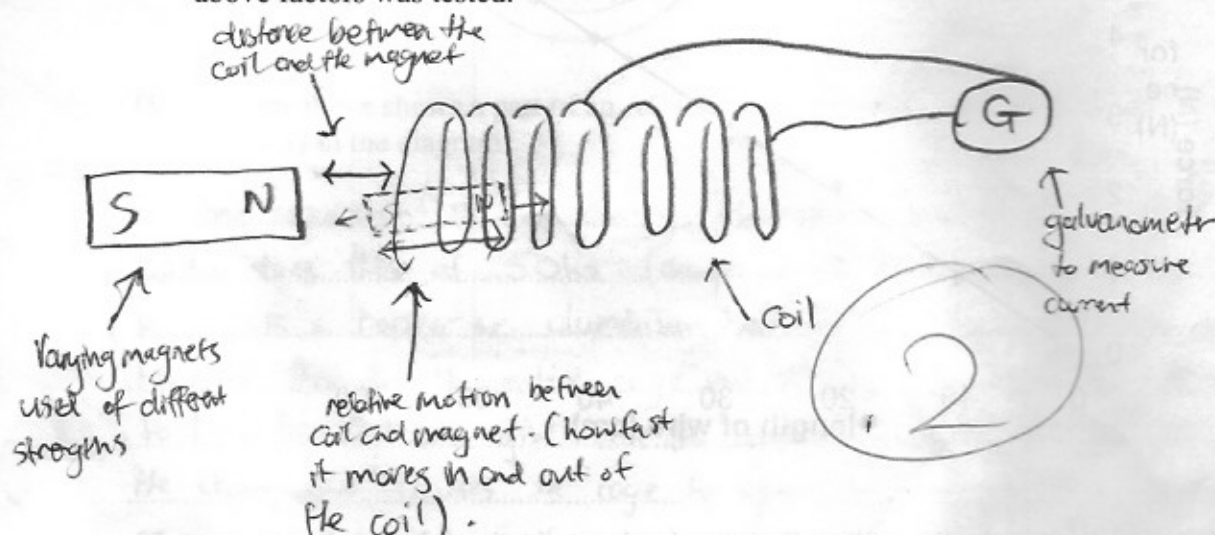 above factors was tested.
distance between the
coil and the magnet
S N
N
G
galvanometer
to measure
current
coil
Varying magnets
used of different
stregths
relative motion between
coil and magnet. (how fast
it moves in and out of
the coil).
2
for
(N)
20 30 40
length of wire